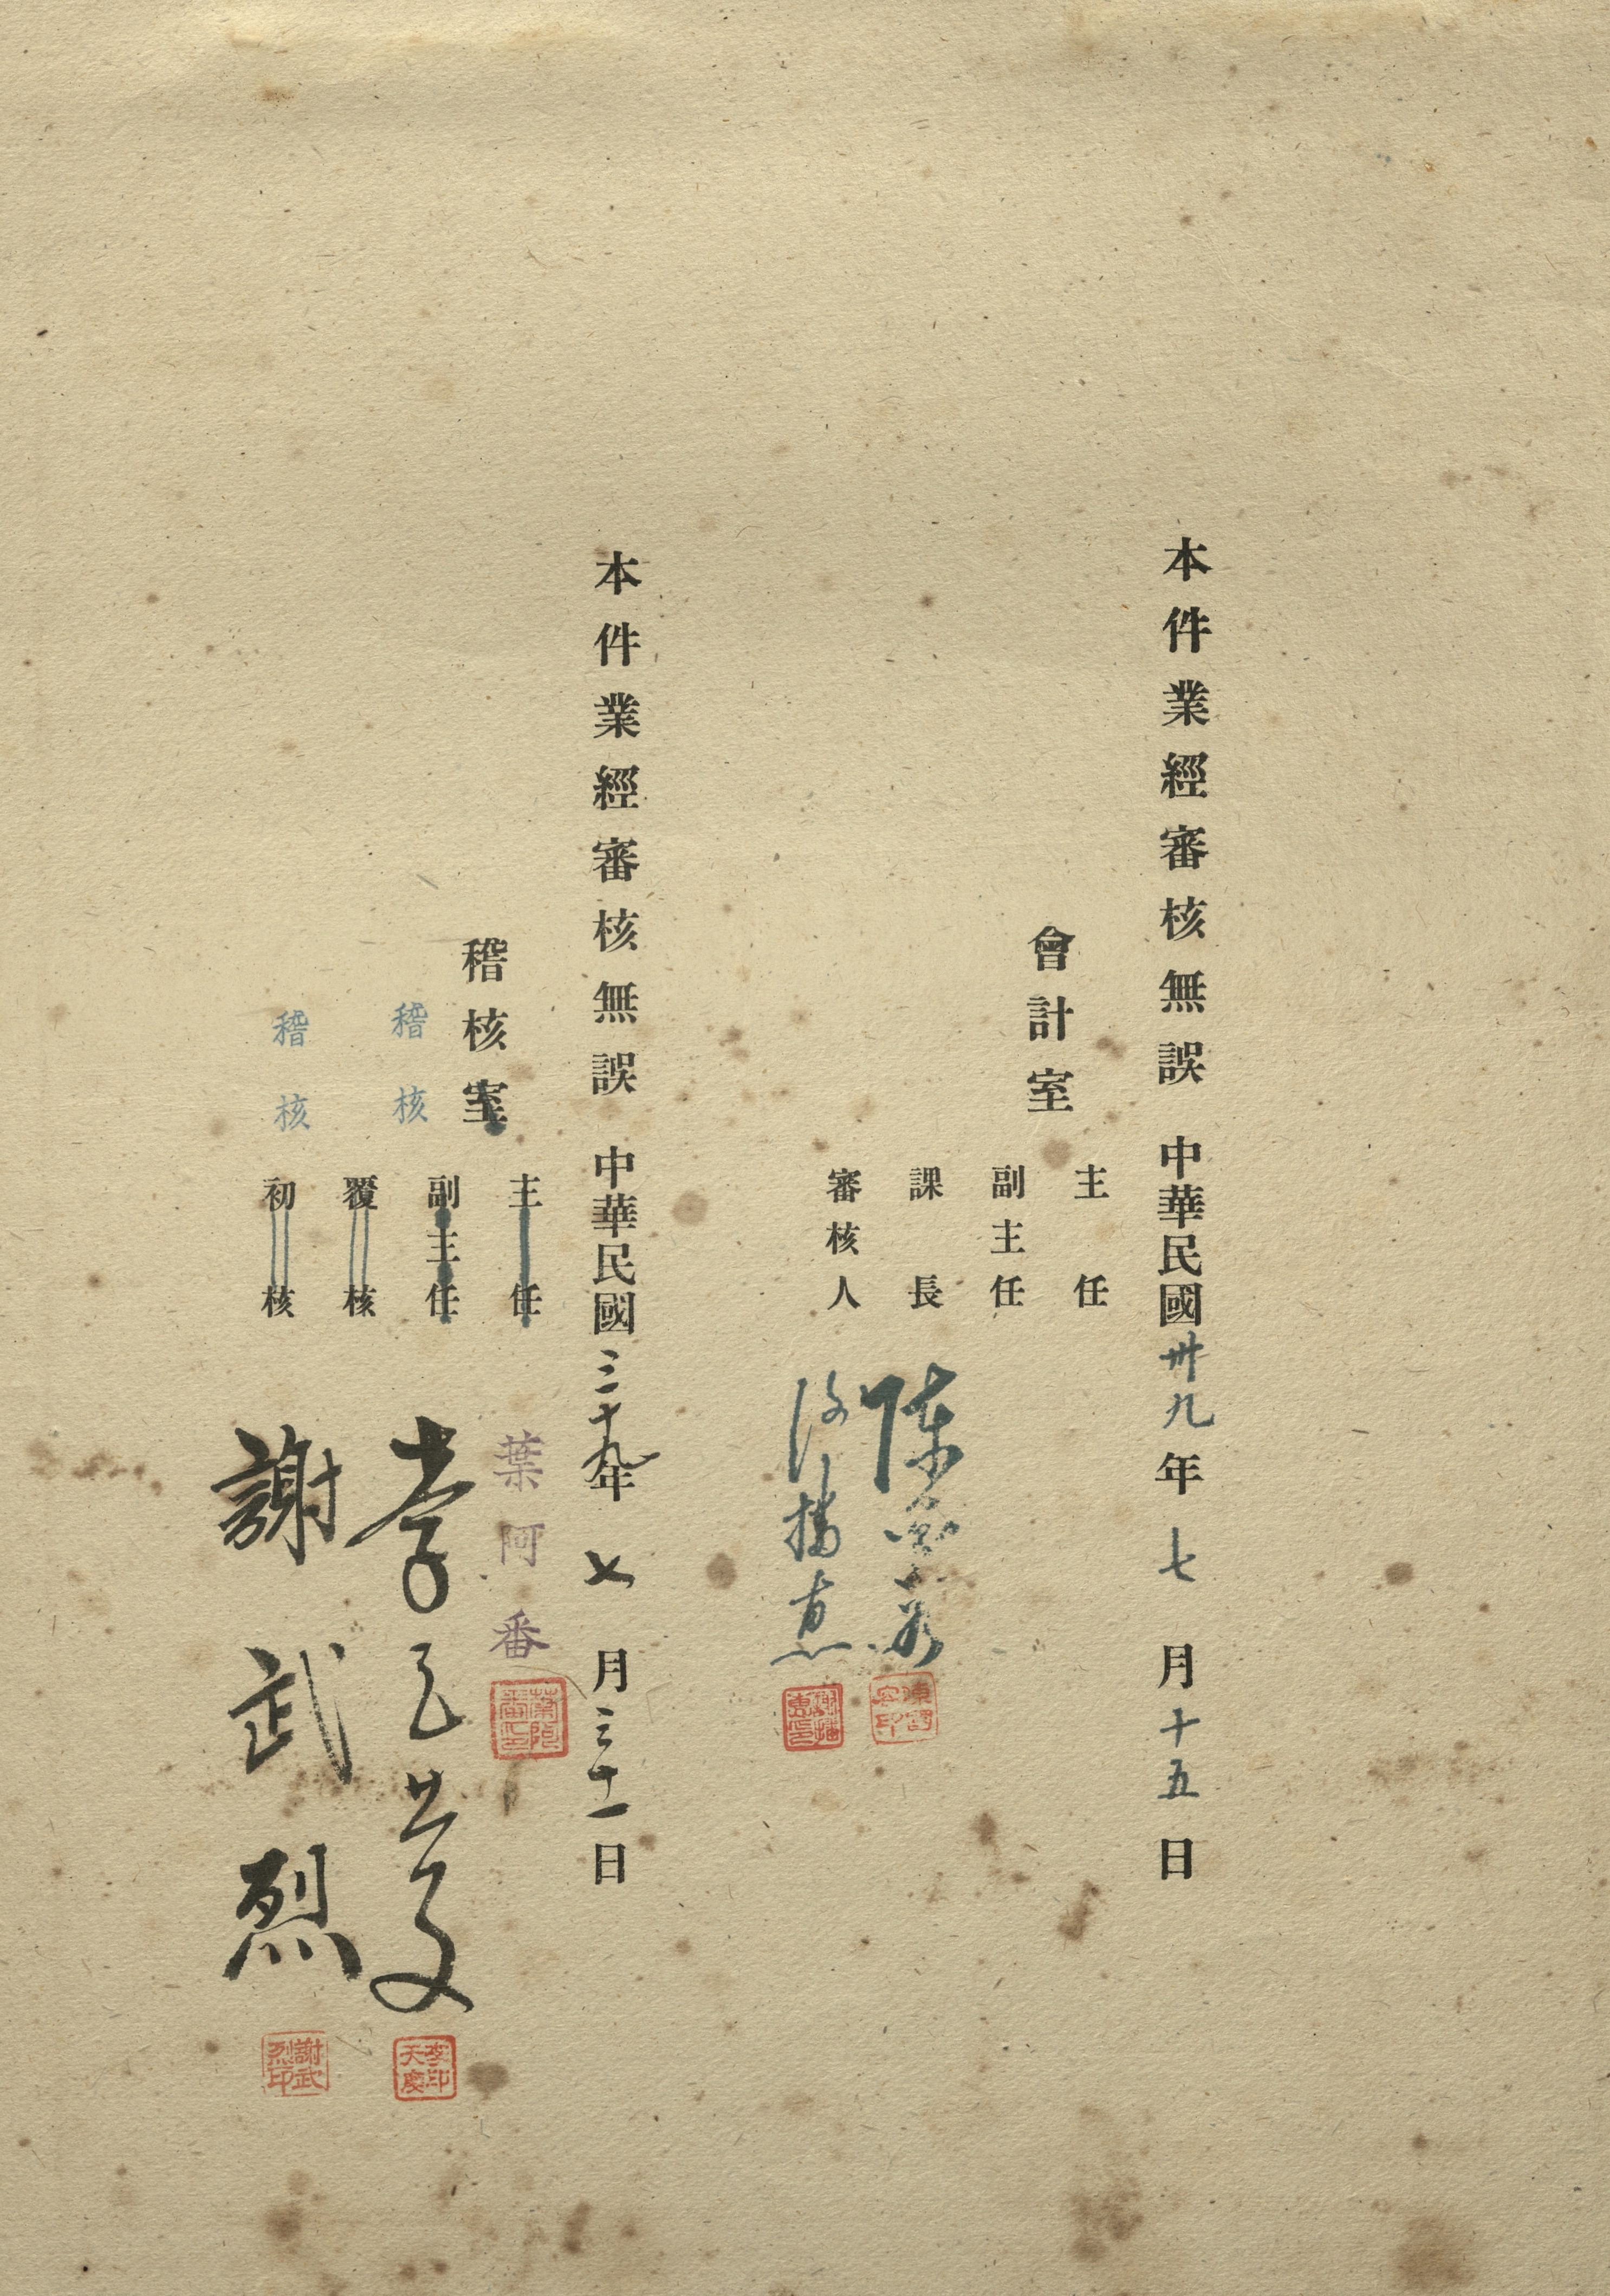 本件業經審核無誤 中華民國卅九年七月十五日
會計室
主任
副主任
課長
審核人
陳
本件業經審核無誤 中華民國三十九年七月三十一日
稽核室
主任
葉阿番
葉阿番印
副主任
稽核
李天慶
李印天慶
覆核
稽核
初核
謝武烈
謝武烈印